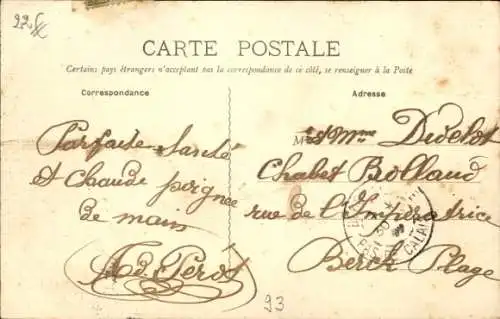 CARTE POSTALE
Certains pays étrangers n'acceptant pas la correspondance de ce côté, se renseigner à la Poste
Correspondance
Adresse
Parfaite Santé
et Chaude poignée
de main
Ad. Pérot
M et Mme Divelot
Chalet Bolland
rue de l'Impératrice
Berck Plage
93